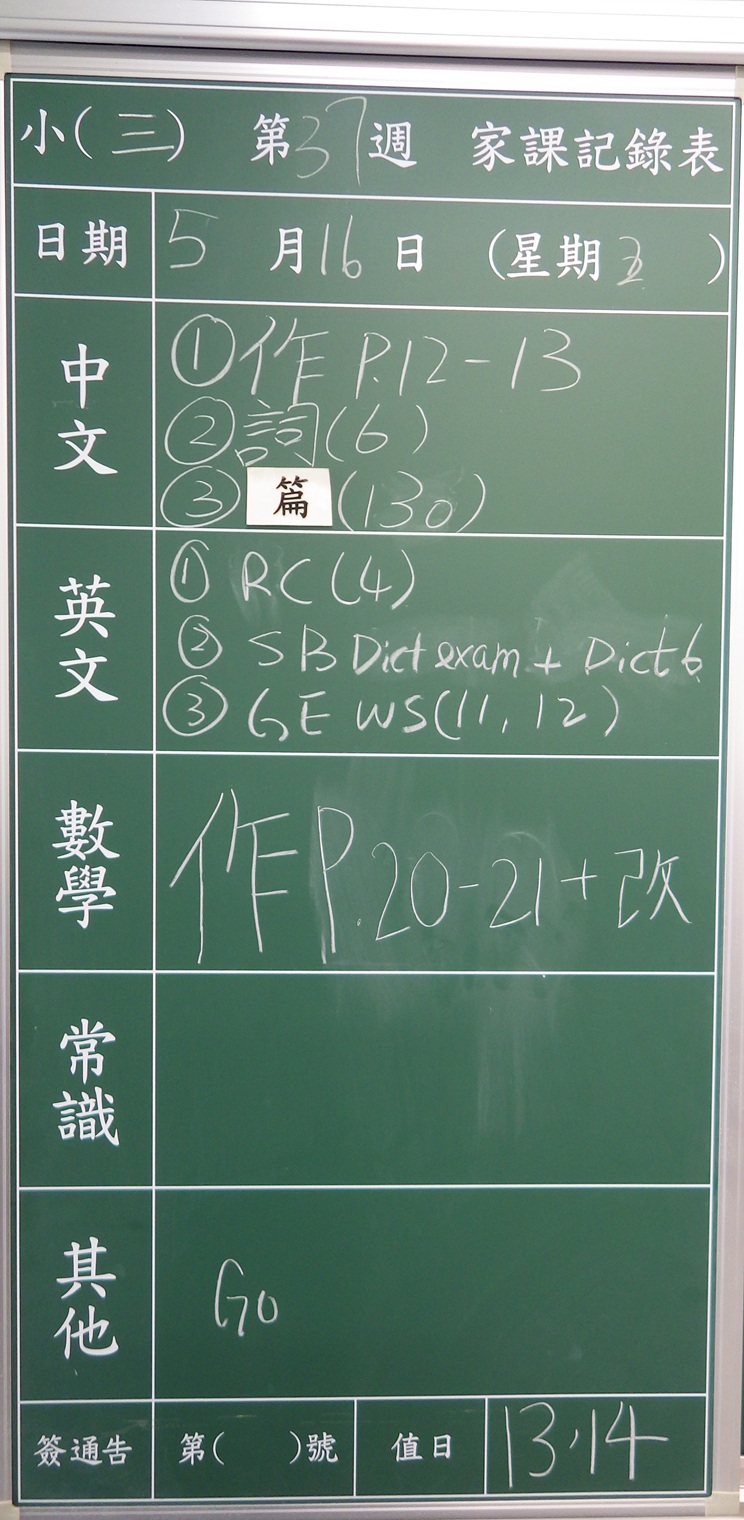 小(三) 第37週 家課記錄表
日期 5月16日 (星期五)
中文
①作 P.12-13
②詞(6)
③篇(130)
英文
① RC (4)
② SB Dict exam + Dict 6
③ GE WS(11, 12)
數學
作 P.20-21 + 改
常識
其他
Go
簽通告 第( )號 值日 13,14